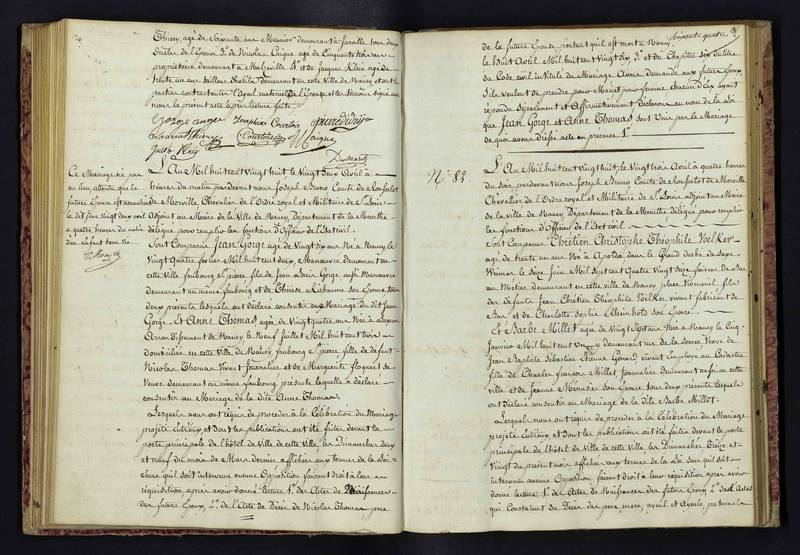 Thiery, agé de Soixante ans Meunier demeurant à Jarville tous deux
Oncles de l'Epouse 3.° de Nicolas Caigne agé de Cinquante huit ans
propriétaire demeurant à Malzeville 4.° et de Jacques Klein agé de
trente un ans tailleur d'habits demeurant en cette Ville de Nancy et ont les
parties contractantes l'ayeul maternel de l'Epouge et les témoins signé avec
nous le présent acte après lecture faite.
Josephine Courtois
Laurent thiery Courtois Caigne
Jacob Klein
Ce Mariage n'a pas
eu lieu, attendu que la
future Epouse est accouchée
le dit jour vingt deux avril
à quatre heures du matin
d'un Enfant sans Vie
L'An Mil huit cent Vingt huit le Vingt deux Avril à
heures du matin pardevant nous Joseph Bruno Comte de
de Morville, Chevalier de l'Ordre royal et Militaire de St. Louis
Adjoint au Maire de la Ville de Nancy, Département de la Meurthe
délégué pour remplir les fonctions d'Officier de l'Etat civil.
Sont Comparus Jean Gorge agé de Vingt six ans Né à Nancy le
Vingt quatre fevrier Mil huit cent deux, Manœuvre demeurant en
cette Ville faubourg St. pierre fils de Jean Louis Gorge aussi Manœuvre
demeurant au même faubourg et de Thérèse Richaume son Epouse tous
deux présents lesquels ont déclaré consentir au Mariage du dit Jean
Gorge. Et Anne Thomas agée de Vingt quatre ans Née à Laxou
Arrondissement de Nancy le Neuf Juillet Mil huit cent trois
domiciliée en cette Ville de Nancy faubourg St. pierre, fille de défunt
Nicolas Thomas Vivant Journalier et de Marguerite Floquet sa
Veuve demeurant au même faubourg présente laquelle a déclaré
consentir au Mariage de la dite Anne Thomas.
Lesquels nous ont requis de procéder à la Célébration du Mariage
projeté entr'eux et dont les publications ont été faites devant la
porte principale de l'hôtel de Ville de cette Ville les Dimanches deux
et neuf du mois de Mars dernier affichées aux termes de la Loi
sans qu'il soit intervenu aucune Opposition faisant droit à leur
réquisition après avoir donné lecture 1.° des Actes de Naissances
des futurs Epoux, 2.° de l'Acte de Décès de Nicolas Thomas, père
Soixante quatre
de la future Epouse portant qu'il est mort à Nancy
le huit Avril Mil huit cent Vingt six 3.° et du Chapitre Six du titre
du Code civil intitulé du Mariage Avons demandé aux futurs Epoux
s'ils veulent se prendre pour Mari et pour femme chacun d'eux ayant
répondu séparément et Affirmativement déclarons au nom de la Loi
que Jean Gorge et Anne Thomas sont Unis par le Mariage
de quoi avons dressé acte en présence 1.°
N.° 83.
L'An Mil huit cent Vingt huit, le Vingt trois Avril à quatre heures
du soir, pardevant nous Joseph Bruno Comte de de Morville
Chevalier de l'Ordre royal et Militaire de St. Louis adjoint au Maire
de la ville de Nancy Département de la Meurthe délégué pour remplir
les fonctions d'Officier de l'Etat civil
Sont Comparus Chrétien Christophe Théophile Voelker
agé de trente un ans Né à Apolda dans le Grand duché de Saxe
Weimar le Seize Juin Mil Sept cent Quatre Vingt Seize faiseur de Bas
au Métier demeurant en cette ville de Nancy, place fils
de défunts Jean Chrétien Théophile Voelker vivant fabricant de
Bas et de Charlotte Sophie Rheinholz son Epouse
Et Barbe Millet agée de Vingt Sept ans Née à Nancy le Cinq
Janvier Mil huit cent un y demeurant rue de la source Veuve de
Jean Baptiste Sébastien Etienne Gérard vivant Employé au Cadastre
fille de Charles François Millet Journalier demeurant aussi en cette
ville et de Jeanne Ménusier son Epouse tous deux présents lesquels
ont déclaré consentir au Mariage de la dite Barbe Millet.
Lesquels nous ont requis de procéder à la Célébration du Mariage
projeté entr'eux et dont les publications ont été faites devant la porte
principale de l'hôtel de Ville de cette ville, les Dimanches Treize et
Vingt du présent mois affichées aux termes de la Loi sans qu'il soit
intervenu aucune Opposition faisant droit à leur réquisition après avoir
donné lecture 1.° des Actes de Naissances des futurs Epoux 2.° des Actes
qui Constatent les Décès des père, mère, ayeuls et Ayeules paternels